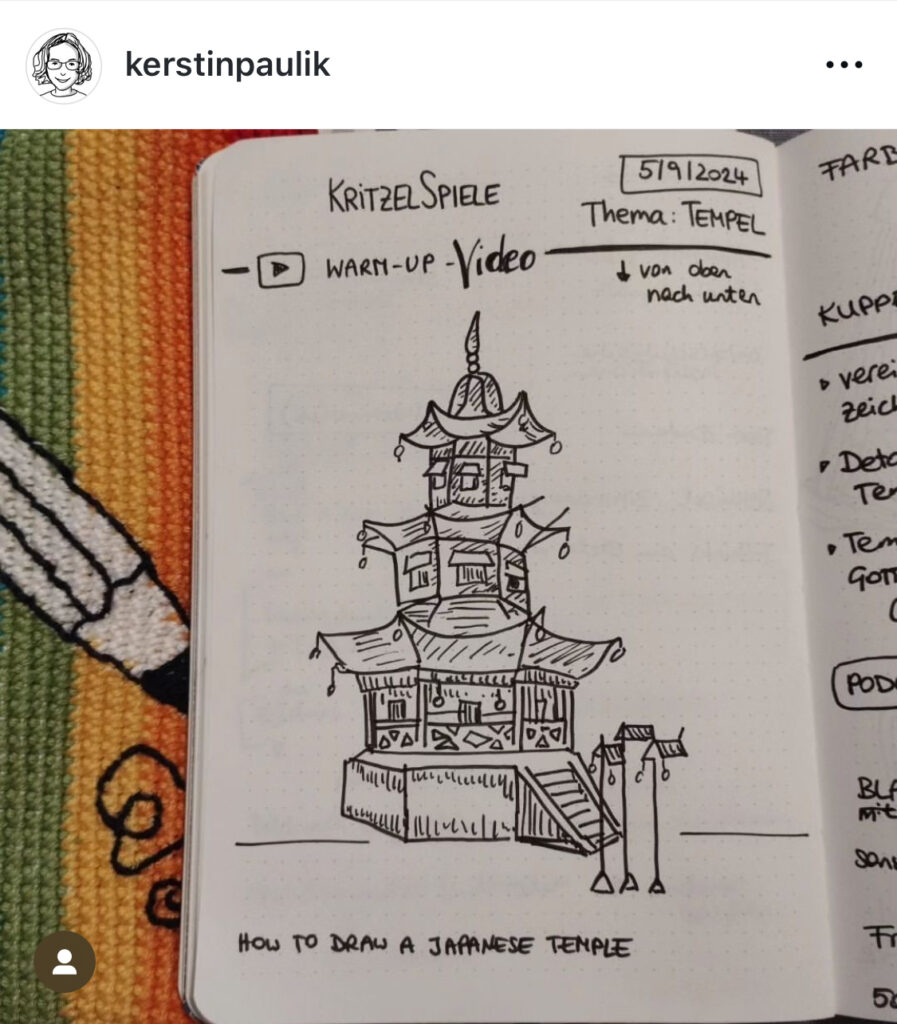 kerstinpaulik
KRITZELSPIELE
5/9/2024
Thema: TEMPEL
WARM-UP - Video
↓ von oben
nach unten
HOW TO DRAW A JAPANESE TEMPLE
FARB
KUPP
verei
zeic
Deta
Te
Tem
GOT
POD
BL
mit